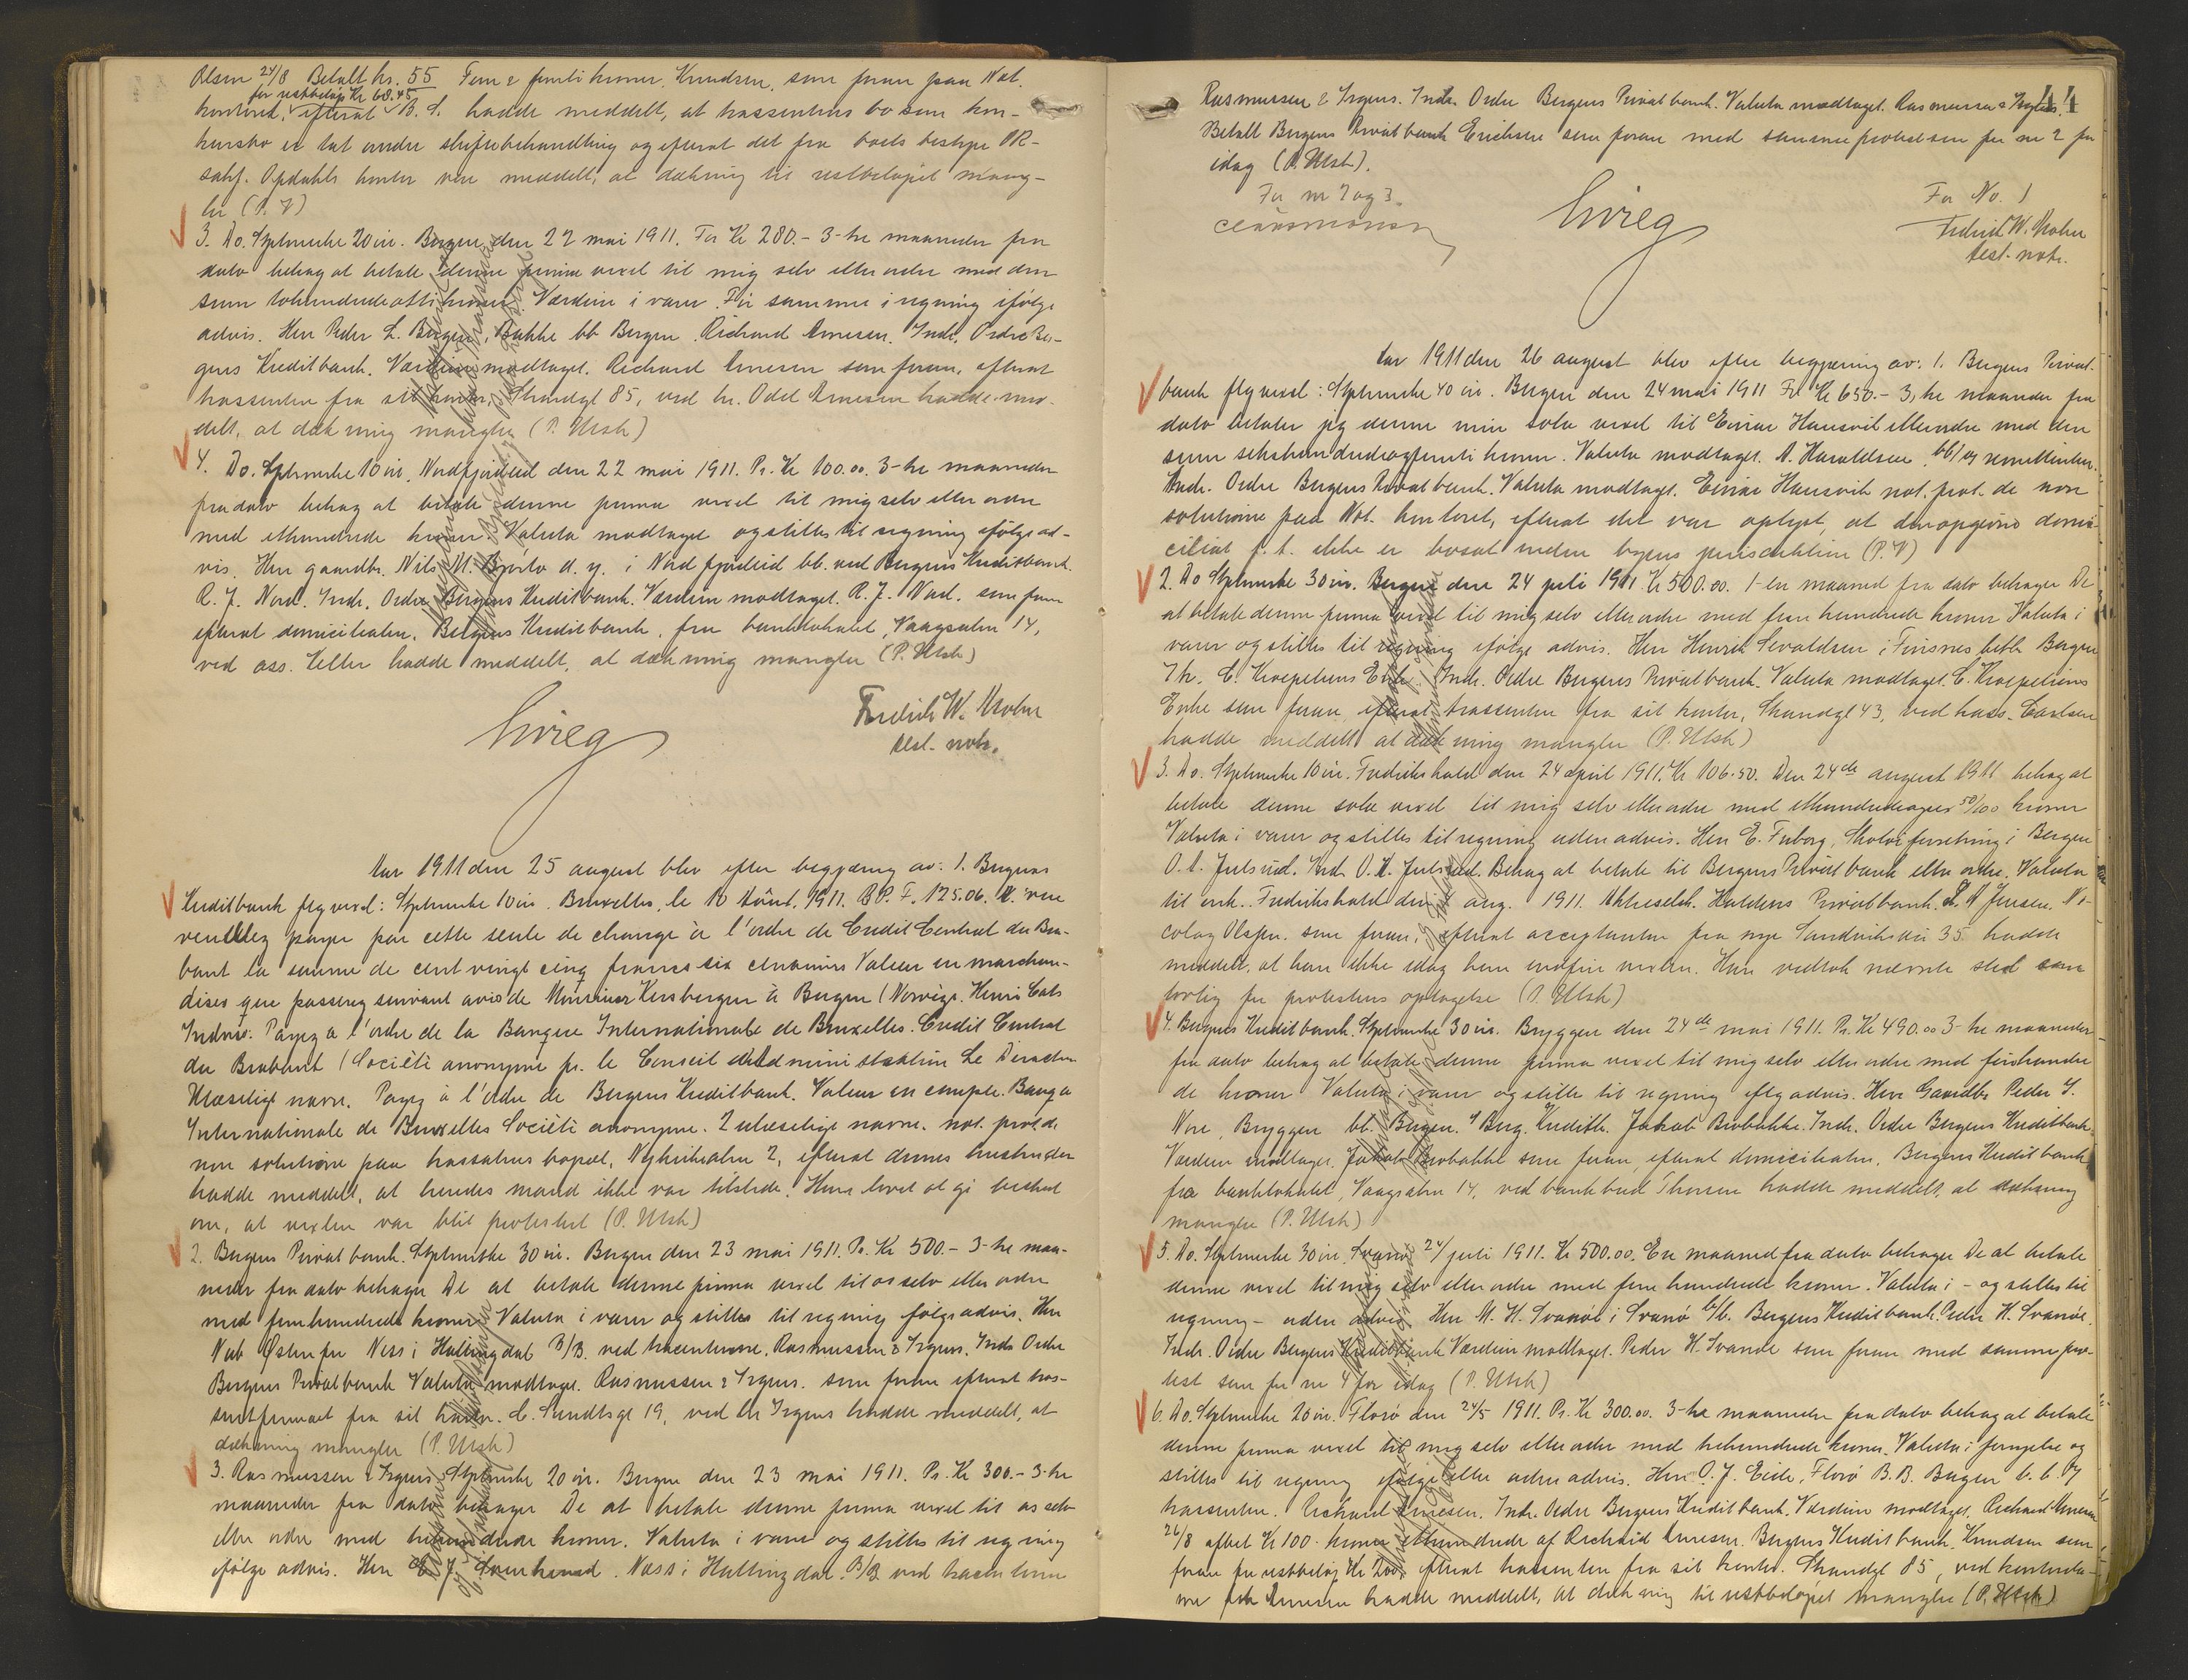 Olsen 24/8 Betalt kr. 55 Fem & femti kroner. Knudsen, som foran paa Not.
for restbeløp Kr 68.45
kontoret, efterat B. S. hadde meddelt, at trassentens bo som kon-
kursbo er tat under skiftebehandling og efterat det fra boets bestyrer OR-
sakf. Opdahls kontor var meddelt, at dækning til restbeløpet mang-
ler (P. V)
3. Do. Stplmerke 20 øre. Bergen den 22 mai 1911. For Kr 280.- 3-tre maaneder fra
dato behag at betale denne prima vexel til mig selv eller ordre med den
sum tohundredeotti kroner. Værdien i varer. Før samme i regning ifølge
advis. Herr Peder L. Bergen, Bakke bb Bergen. Richard Arnesen. Indr. Ordre Ber-
gens Kreditbank. Værdien modtaget. Richard Arnesen som foran, efterat
trassenten fra sit kontor, Strandgt 85, ved hr. Odd Arnesen hadde med-
delt, at dækning mangler (P. Utsk)
4. Do. Stplmerke 10 øre. Nordfjordeid den 22 mai 1911. Pr. Kr 100.00. 3-tre maaneder
fra dato behag at betale denne prima vexel til mig selv eller ordre
med ethundrede kroner. Valuta modtaget og stilles til regning ifølge ad-
vis. Herr gaardbr. Nils M. Bjørlo d. y. i Nordfjordeid bb. ved Bergens Kreditbank.
R. J. Nord. Indr. Ordre Bergens Kreditbank. Værdien modtaget. R. J. Nord. som foran
efterat domiciliaten, Bergens Kreditbank, fra banklokalet, Vaagsalm 14,
ved ass. Keller hadde meddelt, at dækning mangler (P. Utsk)
Fredrik W. Krohn
const. notr.
Aar 1911 den 25 august blev efter begjæring av: 1. Bergens
Kreditbank flg vexel: Stplmerke 10 øre. Bruxelles, le 10 Aôut. 1911. B.P. F. 125.06. A vue
veuillez payer par cette seule de change à l'ordre de Credit Central du Bra-
bant la somme de cent vingt cinq francs six centimes Valeur en marchan-
dises que passerez suivant avis de Monsieur Kersbergen à Bergen (Norvège. Henri Cats
Indrs: Payez a l'ordre de la Banque Internationale de Bruxelles. Credit Central
du Brabant (Société anonyme pr. le Conseil d'Administration Le Directeur
Ulæseligt navn. Payez à l'ordre de Bergens Kreditbank. Valeur en compte. Banque
Internationale de Bruxelles Société anonyme. 2 ulæselige navne. not. prot. de
non solutione paa trassatens bopæl, Nykirkealm 2, efterat dennes hustru der
hadde meddelt, at hendes mand ikke var tilstede. Hun lovet at gi besked
om, at vexlen var blit protestert (P. Utsk)
2. Bergens Privatbank. Stplmerke 30 øre. Bergen den 23 mai 1911. Pr. Kr 500.- 3-tre maa-
neder fra dato behager De at betale denne prima vexel til os selv eller ordre
med femhundrede kroner. Valuta i varer og stilles til regning følge advis. Herr
Ness i Hallingdal B/B. ved trassenterne. Rasmussen & Irgens. Indr. Ordre
Bergens Privatbank Valuta modtaget. Rasmussen & Irgens. som foran efterat tras-
sentfirmaet fra sit kontor. C. Sundtsgt 19, ved hr Irgens hadde meddelt, at
dækning mangler (P. Utsk)
3. Rasmussen & Irgens. Stplmerke 20 øre. Bergen den 23 mai 1911. Pr. Kr 300.- 3-tre
maaneder fra dato behager De at betale denne prima vexel til os selv
eller ordre med trehundrede kroner. Valuta i varer og stilles til regning
ifølge advis. Herr E. J. Næss i Hallingdal. B/B ved trassenterne
44
Rasmussen & Irgens. Indr. Ordre Bergens Privatbank. Valuta modtaget. Rasmussen & Irgens.
Betalt Bergens Privatbank Erichsen som foran med samme protest som for nr 2 for
idag (P. Utsk).
For nr 2 og 3.
For No. 1
Fredrik W. Krohn
const. notr.
Aar 1911 den 26 august blev efter begjæring av: 1. Bergens Privat-
bank flg vexel: Stplmerke 40 øre. Bergen den 24 mai 1911 For Kr 650.- 3, tre maaneder fra
dato betaler jeg denne min sola vexel til Einar Hansvik eller ordre med den
sum sekshundredeogfemti kroner. Valuta modtaget. A. Haraldsen. bb/ og remittenten.
Indr. Ordre Bergens Privatbank. Valuta modtaget. Einar Hansvik not. prot. de non
solutione paa Not. kontoret, efterat det var oplyst, at den opgivne domi-
ciliat p.t. ikke er bosat inden byens jurisdiktion (P. V)
2. Do Stplmerke 30 øre. Bergen den 24 juli 1911. Kr 500.00. 1-en maaned fra dato behager De
at betale denne prima vexel til mig selv eller ordre med fem hundrede kroner Valuta i
varer og stilles til regning ifølge advis. Herr Henrik Sevaldsen i Finsnes betb. Bergen
Th. C. Kroepeliens Enke. Indr. Ordre Bergens Privatbank. Valuta modtaget. C. Kroepeliens
Enke som foran, efterat trassenten fra sit kontor, Strandgt 43, ved kass. Carlsen
hadde meddelt at dækning mangler (P. Utsk)
3. Do. Stplmerke 10 øre. Fredrikshald den 24 april 1911. Kr 106.50. Den 24de august 1911 behag at
betale denne sola vexel til mig selv eller ordre med ethundredeogseks 50/100 kroner
Valuta i varer og stilles til regning uden advis. Herr E. Fuborg, Skotøiforretning i Bergen
O. A. Julsrud. Indr. O. A. Julsrud. Behag at betale til Bergens Privatbank eller ordre. Valuta
til ink. Fredrikshald den aug. 1911. Aktieselsk. Haldens Privatbank. A Jensen. Ni-
colay Olsen. som foran, efterat acceptanten fra nye Sandviksvei 35 hadde
meddelt, at han ikke idag kan indfri vexlen. Han vedtok nævnte sted som
lovlig for protestens optagelse (P. Utsk)
4. Bergens Kreditbank. Stplmerke 30 øre. Bryggen den 24de mai 1911. Pr. Kr 490.00 3-tre maaneder
fra dato behag at betale denne prima vexel til mig selv eller ordre med firehundre
de kroner Valuta i varer og stilles til regning iflg advis. Herr Gaardbr Peder S.
Nore, Bryggen bb. Bergen. Berg. Kreditb. Jakob Brobakke. Indr. Ordre Bergens Kreditbank.
Værdien modtaget. Jakob Brobakke som foran, efterat domiciliaten, Bergens Kreditbank
fra banklokalet, Vaagsalm 14, ved bankbud Thorsen hadde meddelt, at dækning
mangler (P. Utsk)
5. Do. Stplmerke 30 øre. Svanø 24/ juli 1911. Kr 500.00. En maaned fra dato behager De at betale
denne vexel til mig selv eller ordre med fem hundrede kroner. Valuta i - og stilles til
regning - uden advis. Herr M. H. Svanøe i Svanø b/b. Bergens Kreditbank. Peder H. Svanøe.
Indr. Ordre Bergens Kreditbank Værdien modtaget. Peder H. Svanøe som foran med samme pro-
test som for nr 4 for idag (P. Utsk)
6. Do. Stplmerke 20 øre. Florø den 24/5 1911. Pr. Kr 300.00. 3-tre maaneder fra dato behag at betale
denne prima vexel til mig selv eller ordre med trehundrede kroner. Valuta i fornyelse og
stilles til regning ifølge eller uden advis. Herr O. J. Eide, Florø B.B. Bergen b. b. og
trassenten. Richard Arnesen. Indr. Ordre Bergens Kreditbank. Værdien modtaget. Richard Arnesen
26/8 afbet Kr 100. kroner ethundrede af Richard Arnesen. Bergens Kreditbank. Knudsen som
foran for restbeløp Kr 200, efterat trassenten fra sit kontor. Strandgt 85, ved
Arnesen hadde meddelt, at dækning til restbeløpet mangler (P. Utsk)